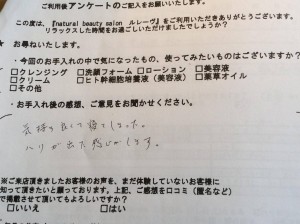 ご利用後アンケートのご記入をお願いいたします。
この度は、『natural beauty salon ルレーヴ』をご利用いただきありがとうございます。
リラックスした時間をお過ごしいただけましたでしょうか?
★ お尋ねいたします。
・今回のお手入れの中で気になったもの、使ってみたいものはございますか?
□クレンジング □洗顔フォーム □ローション □美容液
□クリーム □ヒト幹細胞培養液(美容液) □薬草オイル
□その他
・お手入れ後の感想、ご意見をお聞かせください。
気持ち良くて寝てしまった。
ハリが出た感じがします。
※ご来店頂きましたお客様のお声を、まだ体験していないお客様に
知って頂きたいと願っております。上記、ご感想を口コミ(匿名など)
で掲載させて頂いてもよろしいですか?
□いいえ □はい